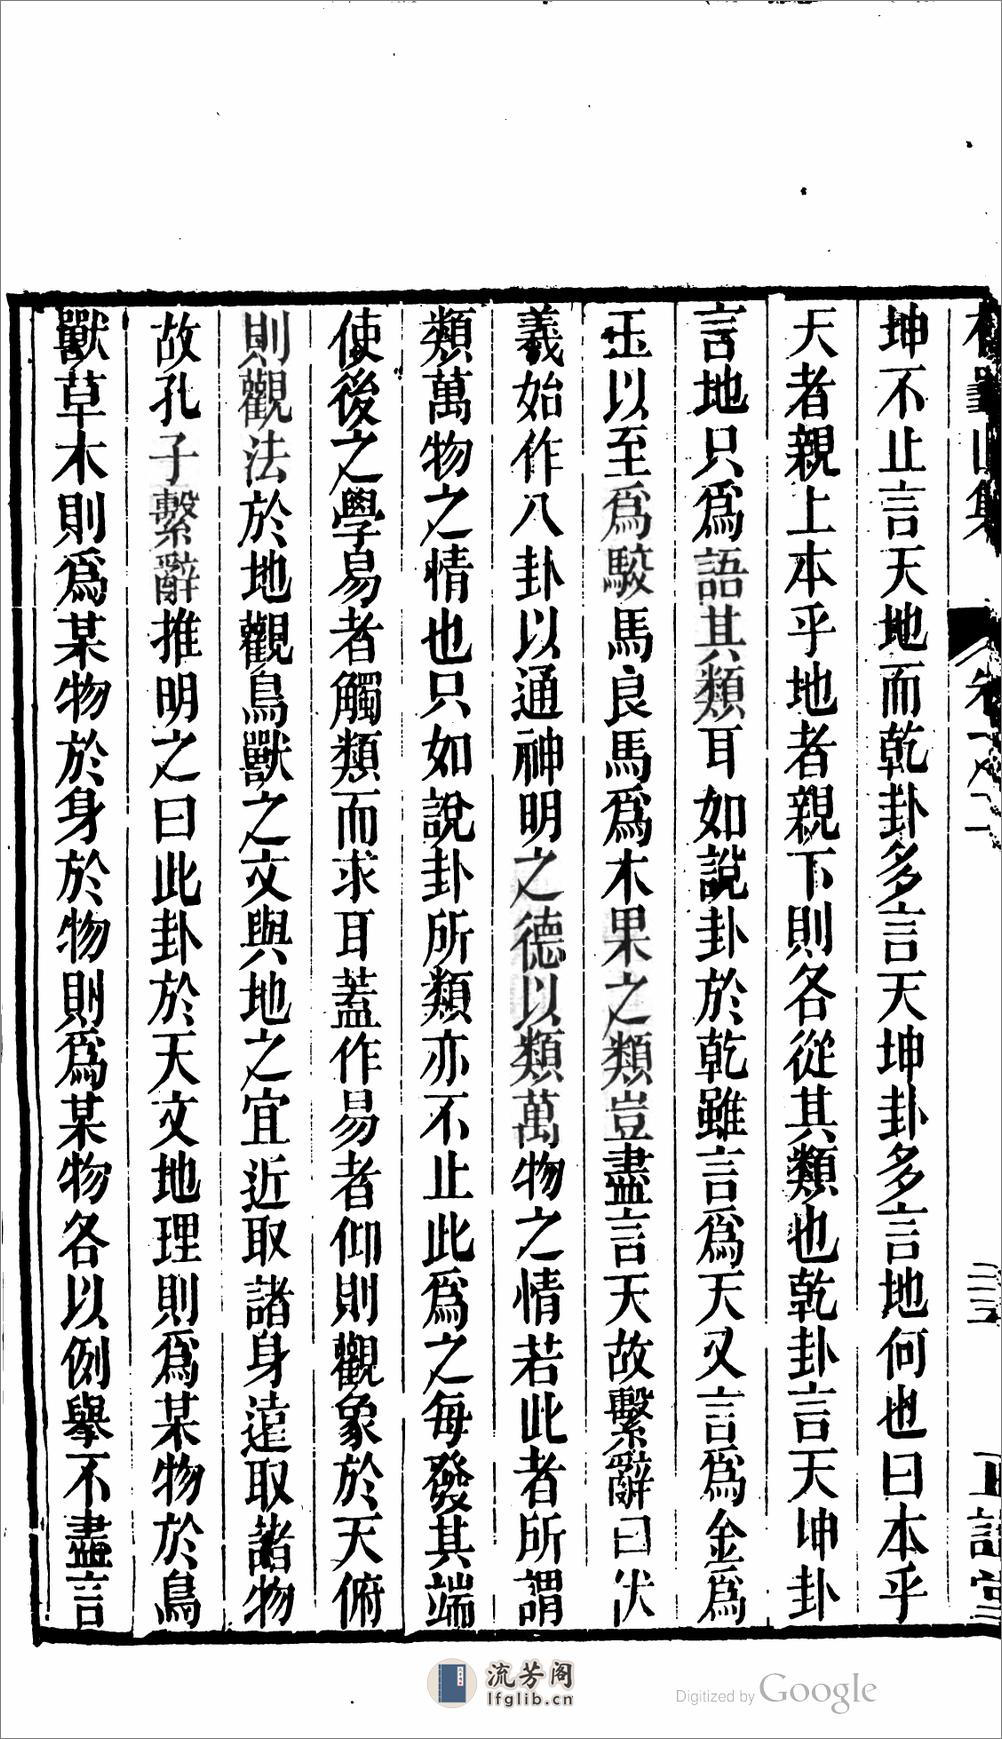 坤不止言天地而乾卦多言天坤卦多言地何也曰本乎
天者親上本乎地者親下則各從其類也乾卦言天坤卦
言地只爲語其類耳如說卦於乾雖言爲天又言爲金爲
玉以至爲駁馬良馬爲木果之類豈盡言天故繫辭曰伏
羲始作八卦以通神明之德以類萬物之情若此者所謂
類萬物之情也只如說卦所類亦不止此爲之每發其端
使後之學易者觸類而求耳蓋作易者仰則觀象於天俯
則觀法於地觀鳥獸之文與地之宜近取諸身遠取諸物
故孔子繫辭推明之曰此卦於天文地理則爲某物於鳥
獸草木則爲某物於身於物則爲某物各以例舉不盡言
流芳阁
lfglib.cn
Digitized by Google